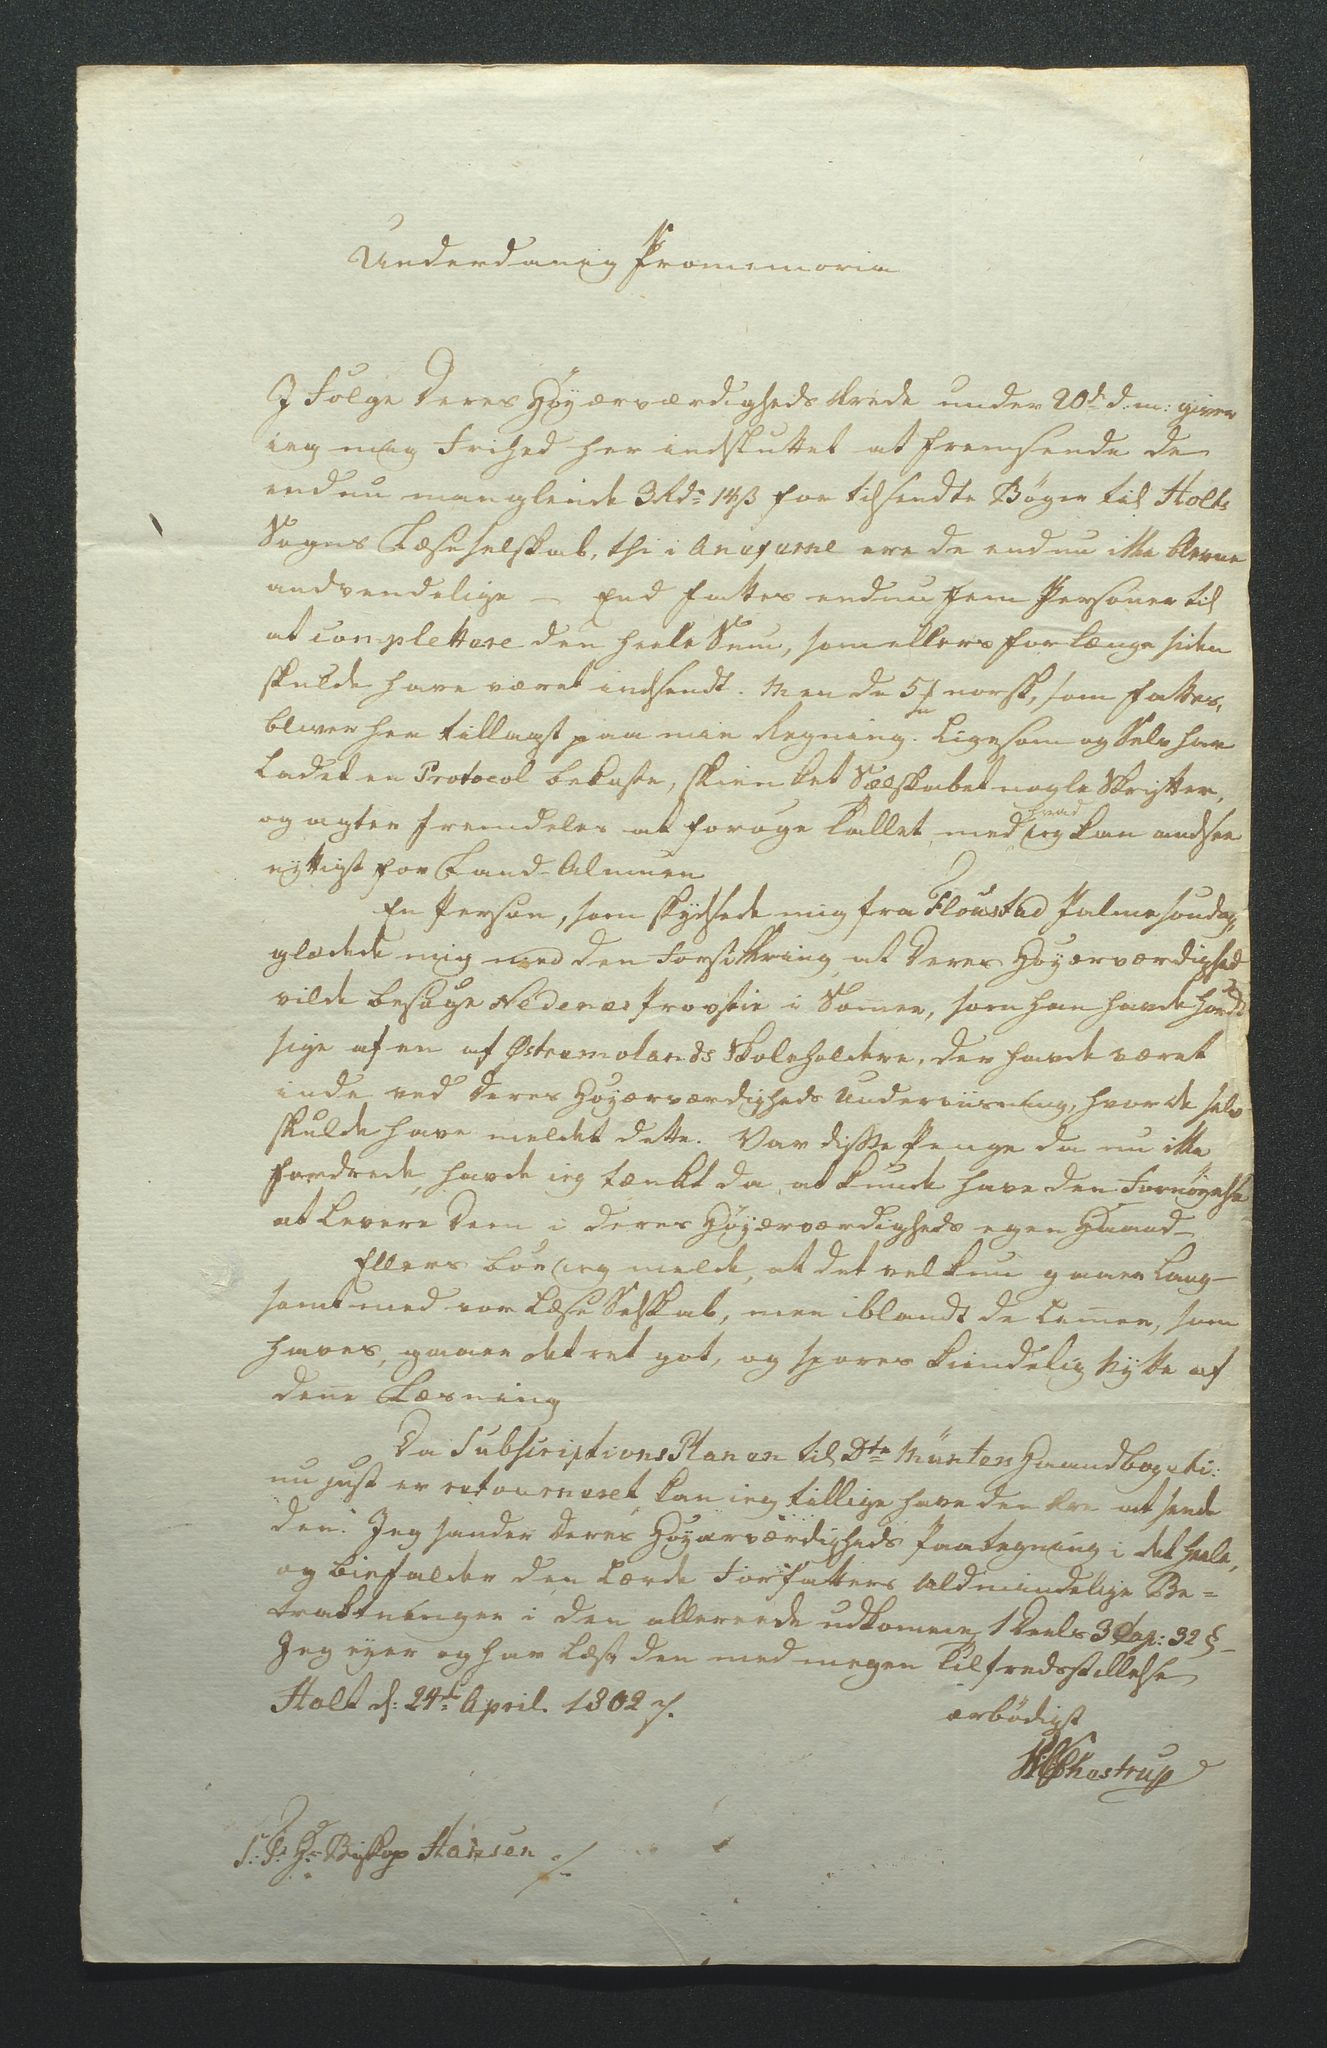 Underdanig Promemoria
I Følge Deres Høyærværdigheds Brede under 20d d: m: giver
ieg mig Frihed her indsluttet at fremsende de
endnu manglende 3 Rdr 14 ß for tilsendte Bøger til Holts
Sogns Læseselskab, thi i Aviserne ere de endnu ikke blevne
andvendelige — End fattes endnu fem Personer til
at complettere den heele Sum, som ellers for længe siden
skulde have været indsendt. Men de 5 norsk, som fattes,
bliver her tillagt paa min Regning. Ligesom og Selv har
Ladet en Protocol bekoste, skienket Selskabet nogle Skrifter,
og agter fremdeles at forøge Tallet med hvad ieg kan andsee
nyttigst for Land-Almuen
En Person, som skydsede mig fra Flousta͏d Palmesøndag,
glædede mig med den Forsikkring at Deres Høyærværdighed
vilde besøge Nedenæs Provstie i Somer, som han havde hørdt
sige af en af Østremolands Skoleholdere, der havde været
inde ved Deres Høyærværdigheds Underviisning, hvor de selv
skulde have meldet dette. Var disse Penge da nu ikke
fordrede, havde ieg tænkt da at kunde have den Fornøyelse
at Levere Dem i Deres Høyærværdigheds egen Haand —
Ellers bør ieg melde, at det vel kun gaaer Lang-
somt med vor Læse Selskab, men iblandt de Lemer, som
haves, gaaer det ret got, og spores kiendelig Nytte af
dene Læsning
Da Subscriptions Planen til Dtr Münters Haandbog etc:
nu just er retourneret kan ieg tillige have den Ære at sende
den. Jeg sander Deres Høyærværdigheds Paategning i det heele,
og biefalder den Lærde Forfatters Aldmindelige Be-
tragtninger i den allereede udkomne 1 Deels 3 Cap: 32 §—
Jeg eyer og har Læst den med megen Tilfredsstillelse
Holt d: 24de April. 1802
ærbødigst
Schastrup
S: T: Hr Biskop Hansen